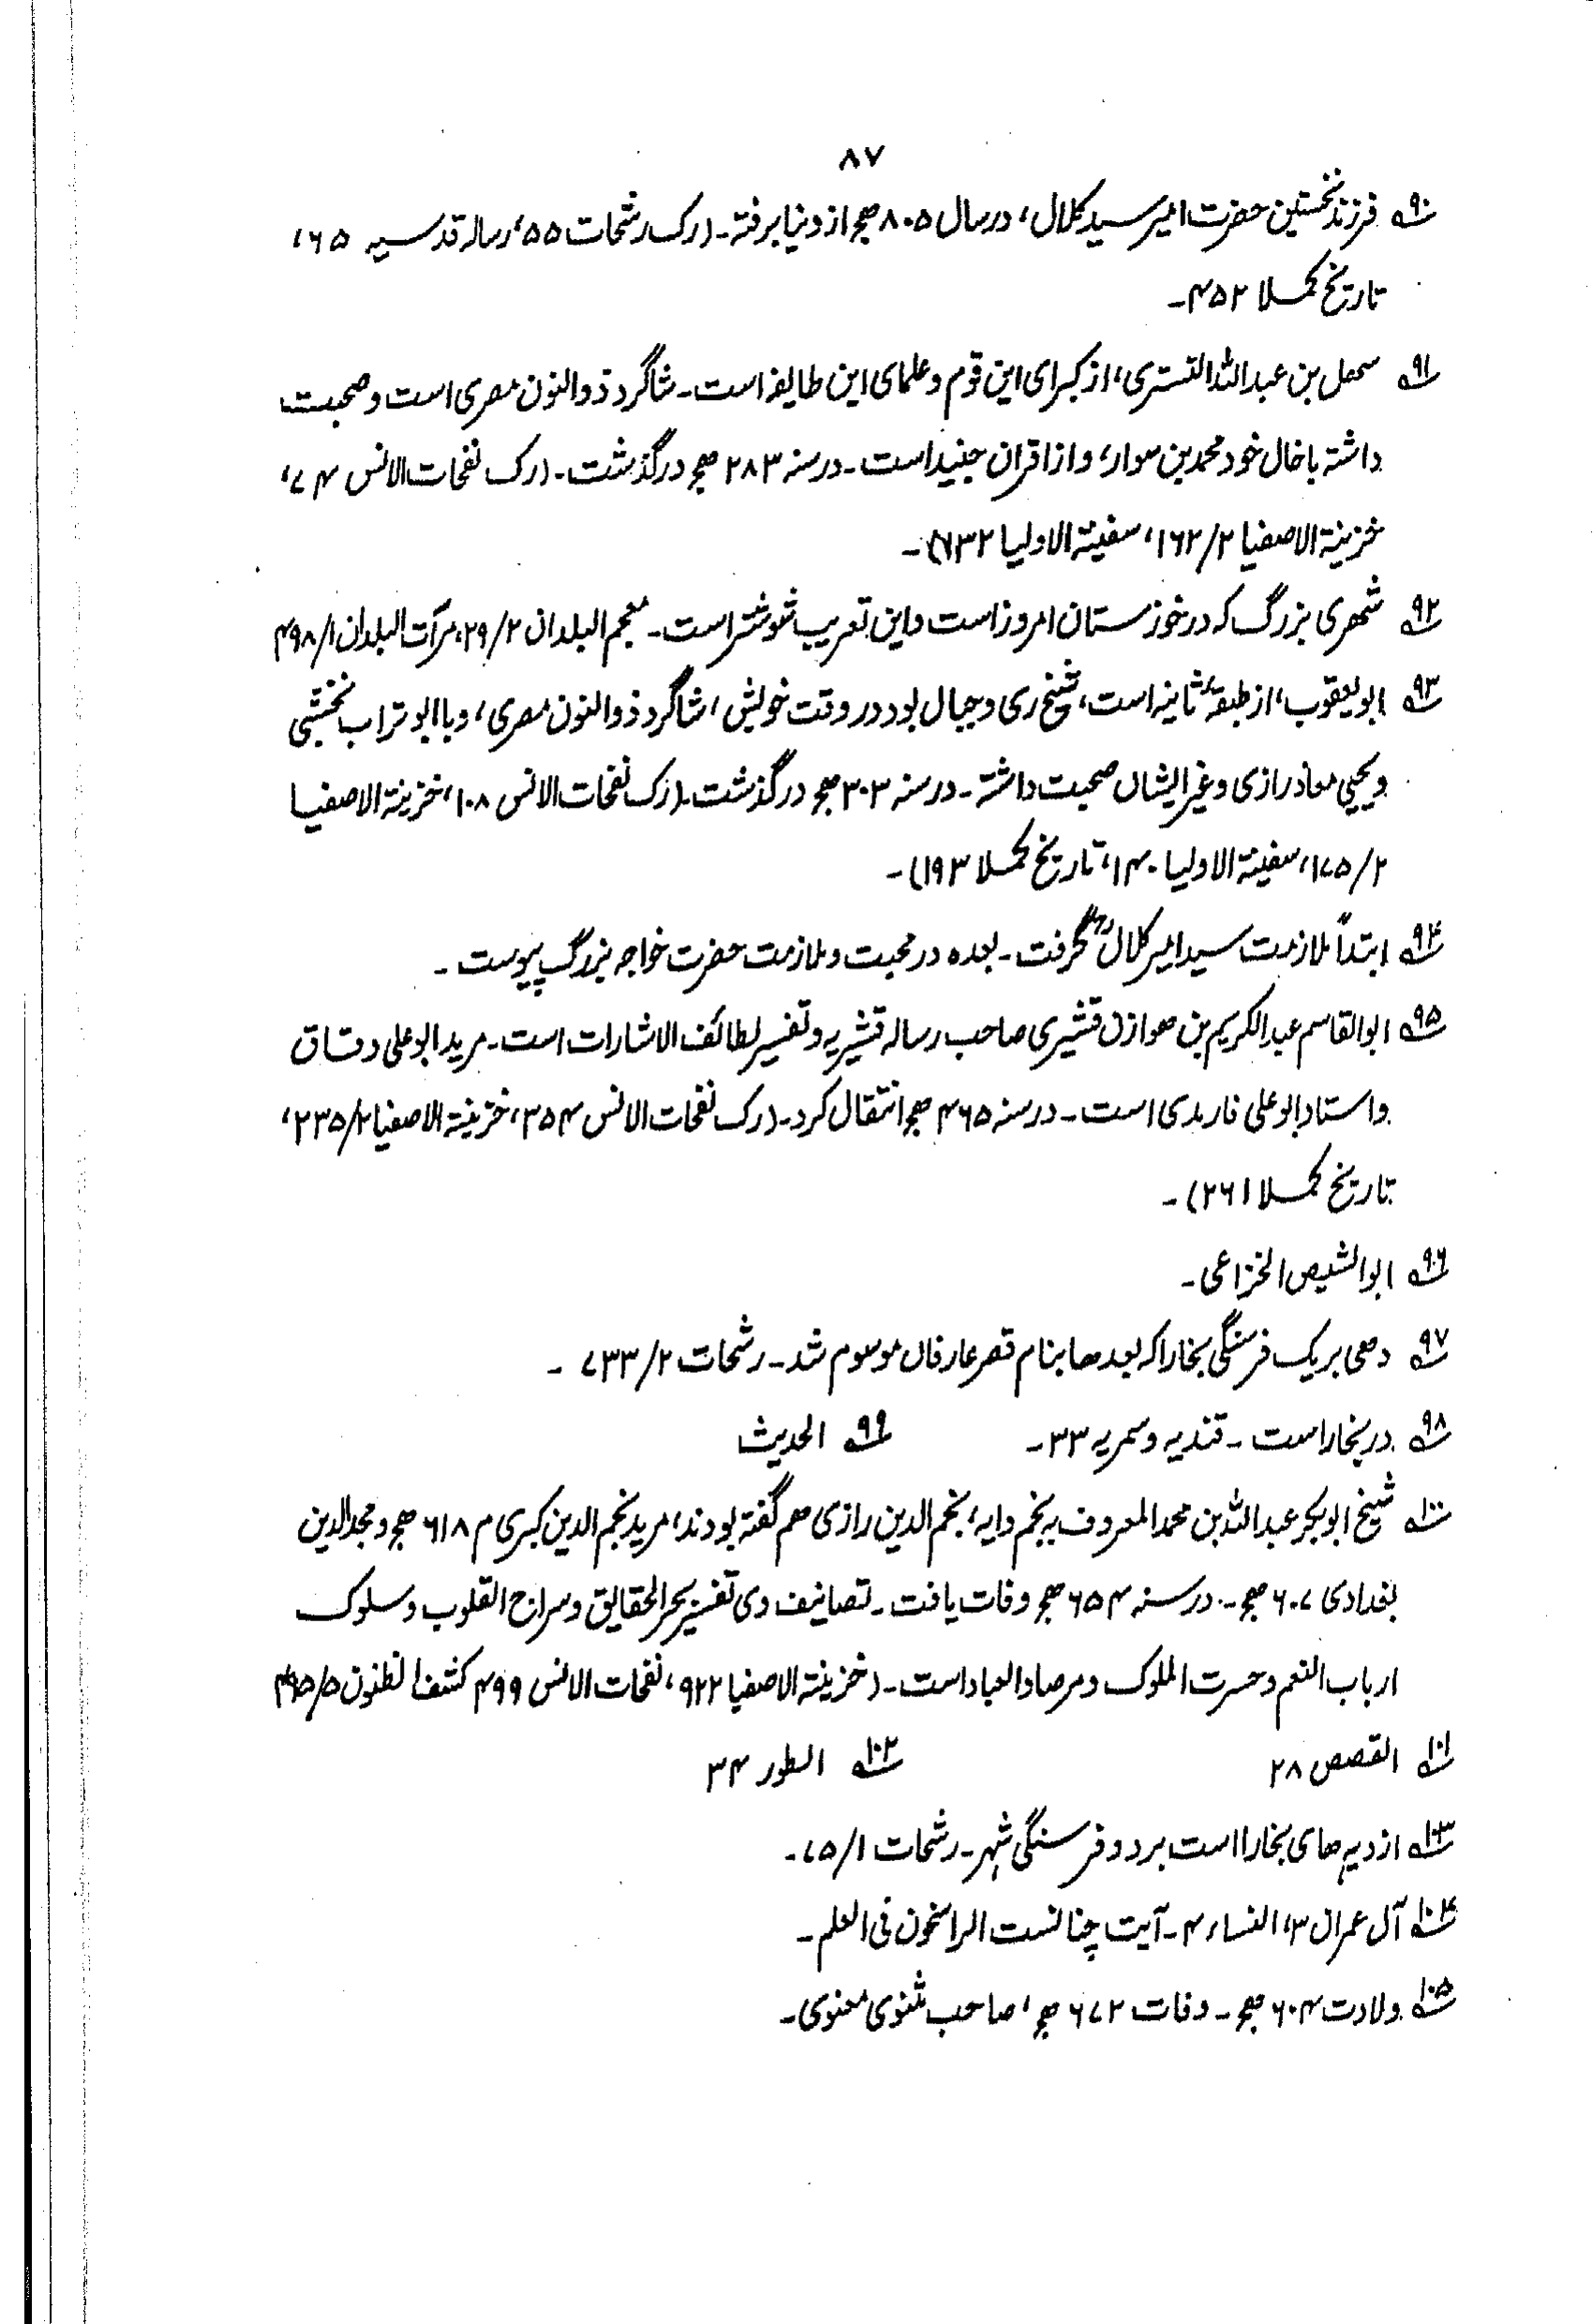 ۸۷
۹۰ فرزند نخستین حضرت امیر سید کلال، در سال ۸۰۵ هج از دنیا برفته۔ (رک رشحات ۵۵، رساله قدسیه ۶۵،
تاریخ کملا ۴۵۲۔
۹۱ سهل بن عبد الله التستری، از کبرای این قوم و علمای این طایفه است۔ شاگرد ذوالنون مصری است و صحبت
داشته با خال خود محمد بن سوار، و از اقران جنید است۔ در سنه ۲۸۳ هج درگذشت۔ (رک نفحات الانس ۷۴،
خزینة الاصفیا ۱۶۲/۲، سفینة الاولیا ۱۳۲)۔
۹۲ شهری بزرگ که در خوزستان امروز است و این تعریب شوشتر است۔ معجم البلدان ۲۹/۲، مرآت البلدان ۴۹۸/۱
۹۳ ابو یعقوب، از طبقهٔ ثانیه است، شیخ ری و جبال بود در وقت خویش، شاگرد ذوالنون مصری، و با ابو تراب نخشبی
و یحیی معاذ رازی و غیر ایشان صحبت داشته۔ در سنه ۳۰۳ هج درگذشت۔ (رک نفحات الانس ۱۰۸، خزینة الاصفیا
۱۷۵/۲، سفینة الاولیا ۱۴۰، تاریخ کملا ۱۹۳)۔
۹۴ ابتداً ملازمت سید امیر کلالؒ گرفت۔ بعده در محبت و ملازمت حضرت خواجه بزرگ پیوست۔
۹۵ ابوالقاسم عبد الکریم بن هوازن قشیری صاحب رساله قشیریه و تفسیر لطائف الاشارات است۔ مرید ابو علی دقاق
و استاد ابو علی فارمدی است۔ در سنه ۴۶۵ هج انتقال کرد۔ (رک نفحات الانس ۳۵۴، خزینة الاصفیا ۲۳۵/۲،
تاریخ کملا ۲۶۱)۔
۹۶ ابوالشیص الخزاعی۔
۹۷ دهی بر یک فرسنگی بخارا که بعدها بنام قصر عارفان موسوم شد۔ رشحات ۷۳۳/۲ ۔
۹۸ در بخارا است۔ قندیه و سمریه ۳۳۔ ۹۹ الحدیث
۱۰۰ شیخ ابوبکر عبد الله بن محمد المعروف به نجم دایه، نجم الدین رازی هم گفته بودند، مرید نجم الدین کبری م ۶۱۸ هج و مجد الدین
بغدادی ۶۰۷ هج۔ در سنه ۶۵۴ هج وفات یافت۔ تصانیف وی تفسیر بحر الحقایق و سراج القلوب و سلوک
ارباب النعم و حسرت الملوک و مرصاد العباد است۔ (خزینة الاصفیا ۹۲۲، نفحات الانس ۴۹۹ کشف الظنون
۱۰۱ القصص ۲۸ ۱۰۲ الطور ۳۴
۱۰۳ از دیه های بخارا است بر دو فرسنگی شهر۔ رشحات ۷۵/۱۔
۱۰۴ آل عمران ۳، النساء ۴۔ آیت چنانست الراسخون فی العلم۔
۱۰۵ ولادت ۶۰۴ هج۔ وفات ۶۷۲ هج، صاحب مثنوی معنوی۔